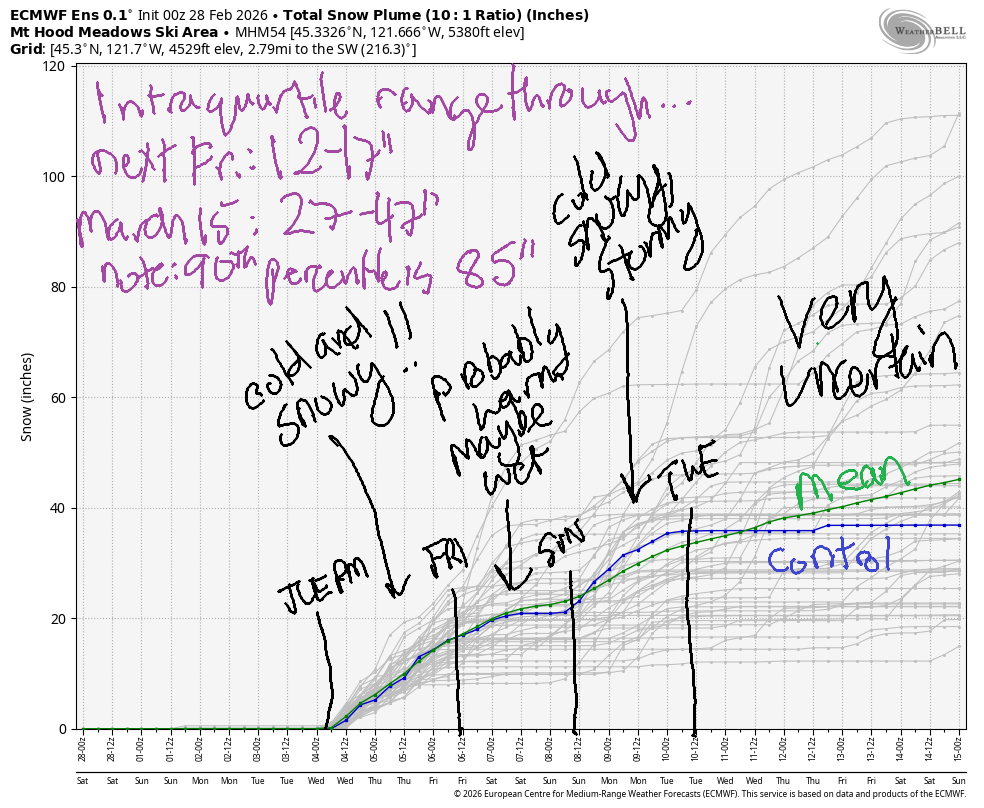 ECMWF Ens 0.1° Init 00z 28 Feb 2026 • Total Snow Plume (10:1 Ratio) (Inches)
Mt Hood Meadows Ski Area • MHM54 [45.3326°N, 121.666°W, 5380ft elev]
Grid: [45.3°N, 121.7°W, 4529ft elev, 2.79mi to the SW (216.3)°]
WEATHERBELL
Intraquartile range through...
next Fri: 12-17"
March 15: 27-47"
note: 90th percentile is 85"
cold
snowy
stormy
Very
uncertain
cold and
snowy!!
probably
warm
maybe
wet
TUE PM
FRI
SUN
TUE
mean
control
Snow (inches)
120
100
80
60
40
20
0
28-00z 28-12z 01-00z 01-12z 02-00z 02-12z 03-00z 03-12z 04-00z 04-12z 05-00z 05-12z 06-00z 06-12z 07-00z 07-12z 08-00z 08-12z 09-00z 09-12z 10-00z 10-12z 11-00z 11-12z 12-00z 12-12z 13-00z 13-12z 14-00z 14-12z 15-00z
Sat Sat Sun Sun Mon Mon Tue Tue Wed Wed Thu Thu Fri Fri Sat Sat Sun Sun Mon Mon Tue Tue Wed Wed Thu Thu Fri Fri Sat Sat Sun
© 2026 European Centre for Medium-Range Weather Forecasts (ECMWF). This service is based on data and products of the ECMWF.